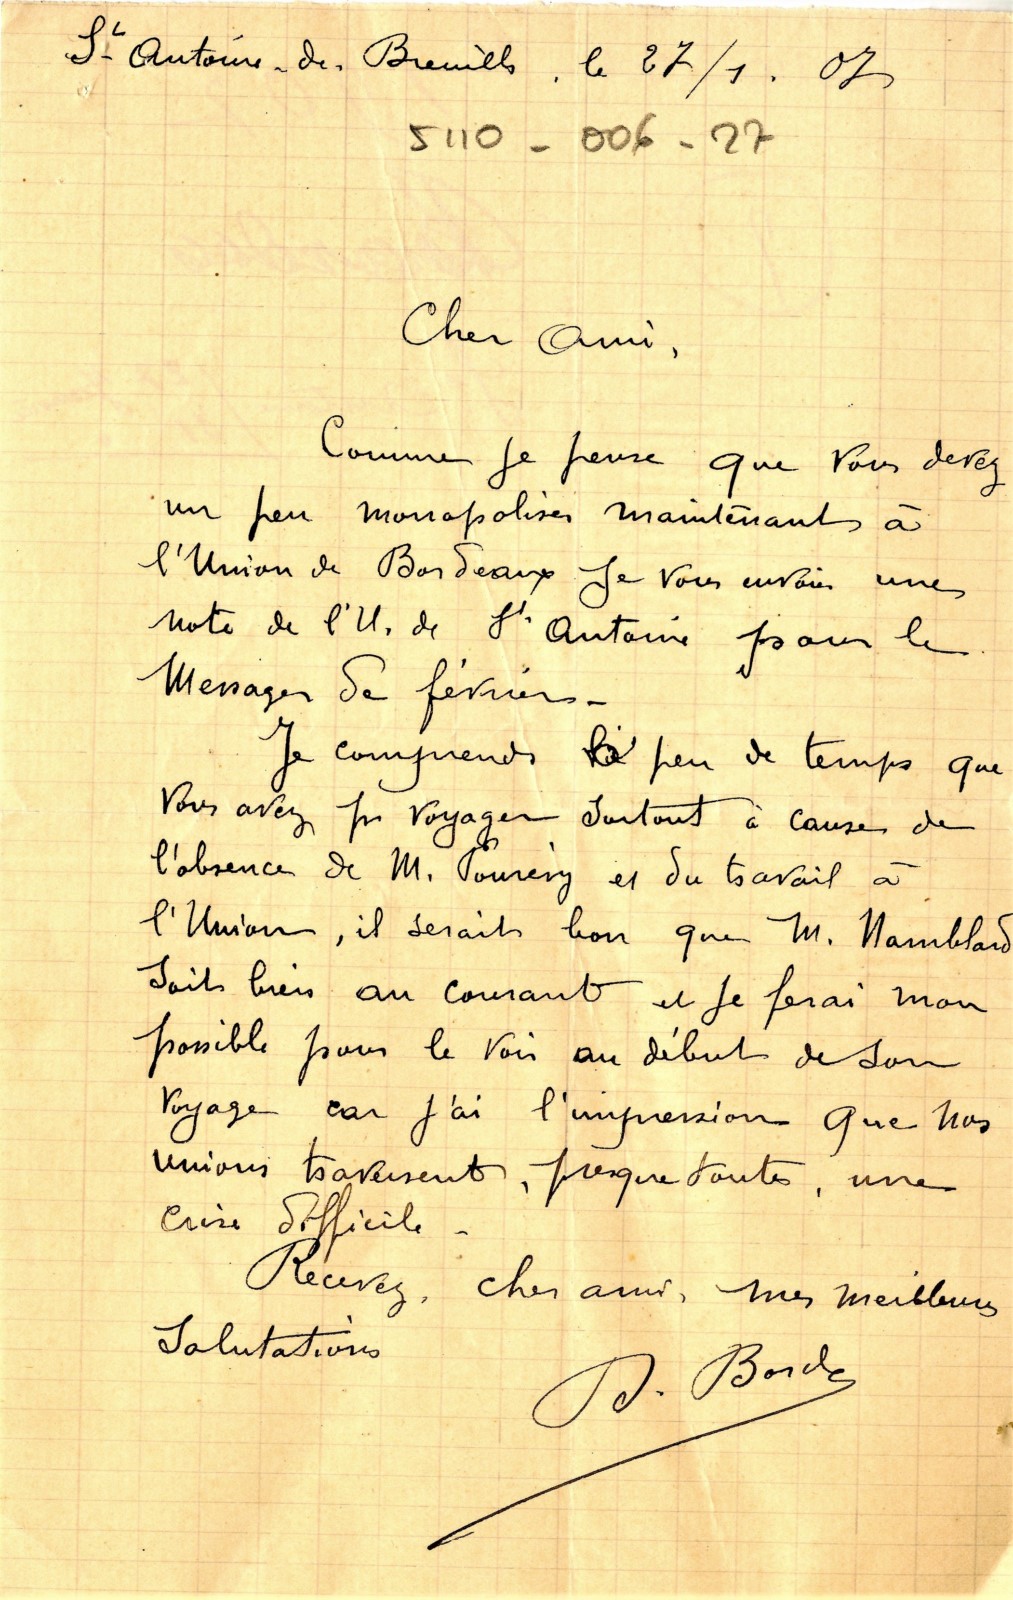 St Antoine-de-Breuilh, le 27/1.07
5110-006-27
Cher Ami,
Comme je pense que vous devez
un peu monopoliser maintenant à
l'Union de Bordeaux je vous envoie une
note de l'U. de St Antoine pour le
Messager de février-
Je comprends le peu de temps que
vous avez pr voyager surtout à cause de
l'absence de M. et du travail à
l'Union, il serait bon que M.
soit bien au courant et je ferai mon
possible pour le voir au début de son
voyage car j'ai l'impression que nos
unions traversent, presque toutes, une
crise difficile-
Recevez, cher ami, mes meilleures
Salutations
D. Borde